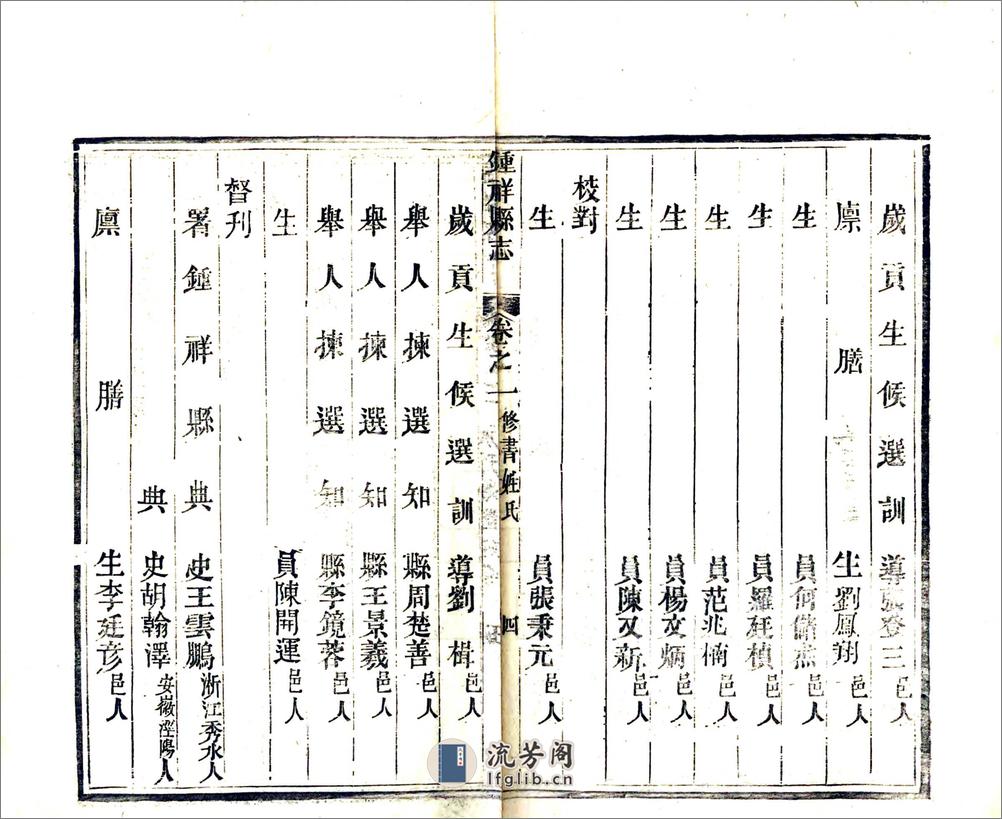 歲貢生候選訓導張登三邑人
廩膳生劉鳳翔邑人
生員何儲杰邑人
生員羅廷楨邑人
生員范兆楠邑人
生員楊文炳邑人
生員陳又新邑人
校對
生員張秉元邑人
鍾祥縣志 卷之一 修書姓氏 四
歲貢生候選訓導劉楫邑人
舉人揀選知縣周楚善邑人
舉人揀選知縣王景羲邑人
舉人揀選知縣李鏡蓉邑人
生員陳開運邑人
督刋
署鍾祥縣典史王雲鵬浙江秀水人
典史胡翰澤安徽涇陽人
廩膳生李廷彥邑人
流芳阁
lfglib.cn